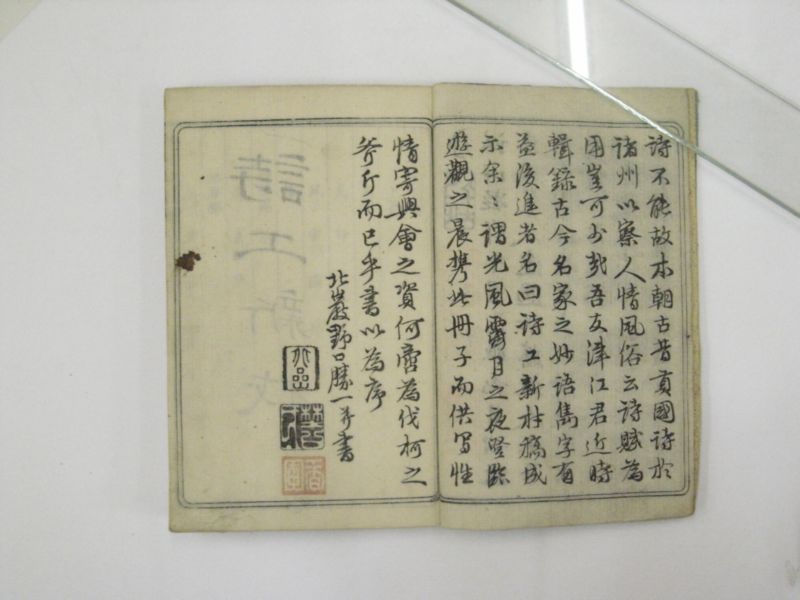 詩不能故本朝古昔貢國詩於
諸州以察人情風俗云詩賦為
用豈可少哉吾友津江君近時
輯錄古今名家之妙語雋字有
益後進者名曰詩工新材稿成
示余〻謂光風霽月之夜登臨
遊觀之晨携此冊子而供写性
情寄興會之資何啻為伐柯之
斧斤而已乎書以為序
北巖野口勝一并書